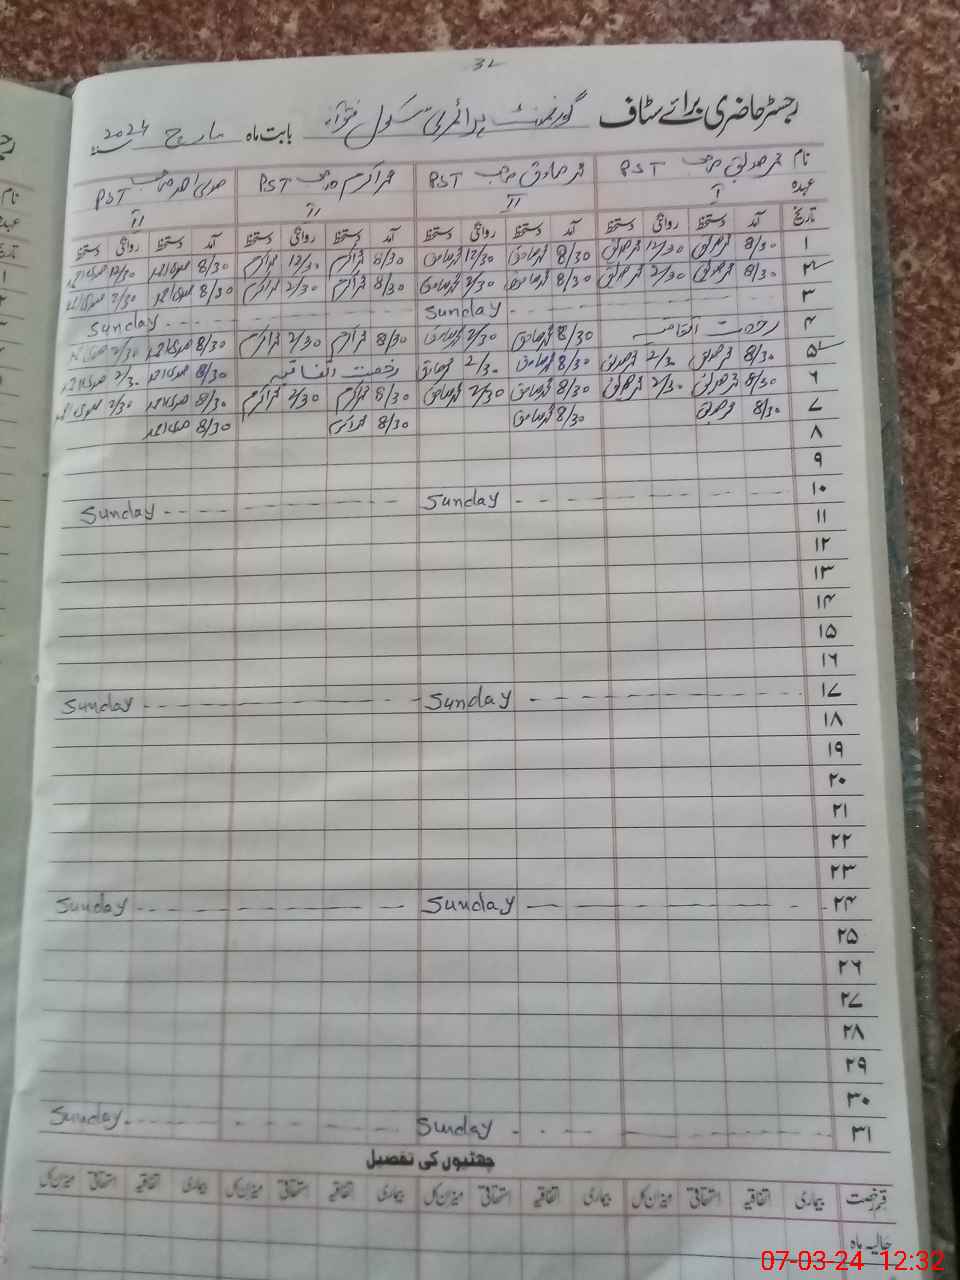 32
رجسٹر حاضری برائے سٹاف گورنمنٹ پرائمری سکول بابت ماہ مارچ 2024
نام محمد صدیق صاحب PST محمد صادق صاحب PST محمد اکرم صاحب PST PST
عہدہ I II II II
تاریخ آمد دستخط روانگی دستخط آمد دستخط روانگی دستخط آمد دستخط روانگی دستخط آمد دستخط روانگی دستخط
۱ 8/30 محمد صدیق 12/30 محمد صدیق 8/30 محمد صادق 12/30 محمد صادق 8/30 محمد اکرم 12/30 محمد اکرم 8/30 12/30
۲ 8/30 محمد صدیق 2/30 محمد صدیق 8/30 محمد صادق 2/30 محمد صادق 8/30 محمد اکرم 2/30 محمد اکرم 8/30 2/30
۳ Sunday Sunday
۴ رخصت اتفاقیہ 8/30 محمد صادق 2/30 محمد صادق 8/30 محمد اکرم 2/30 محمد اکرم 8/30 2/30
۵ 8/30 محمد صدیق 2/30 محمد صدیق 8/30 محمد صادق 2/30 محمد صادق رخصت اتفاقیہ 8/30 2/30
۶ 8/30 محمد صدیق 2/30 محمد صدیق 8/30 محمد صادق 2/30 محمد صادق 8/30 محمد اکرم 2/30 محمد اکرم 8/30 2/30
۷ 8/30 محمد صدیق 8/30 محمد صادق 8/30 محمد اکرم 8/30
۸
۹
۱۰ Sunday Sunday
۱۱
۱۲
۱۳
۱۴
۱۵
۱۶
۱۷ Sunday Sunday
۱۸
۱۹
۲۰
۲۱
۲۲
۲۳
۲۴ Sunday Sunday
۲۵
۲۶
۲۷
۲۸
۲۹
۳۰
۳۱ Sunday Sunday
چھٹیوں کی تفصیل
قسم رخصت بیماری اتفاقیہ استحقاقی میزان کل بیماری اتفاقیہ استحقاقی میزان کل بیماری اتفاقیہ استحقاقی میزان کل بیماری اتفاقیہ استحقاقی میزان کل
حالیہ ماہ
07-03-24 12:32